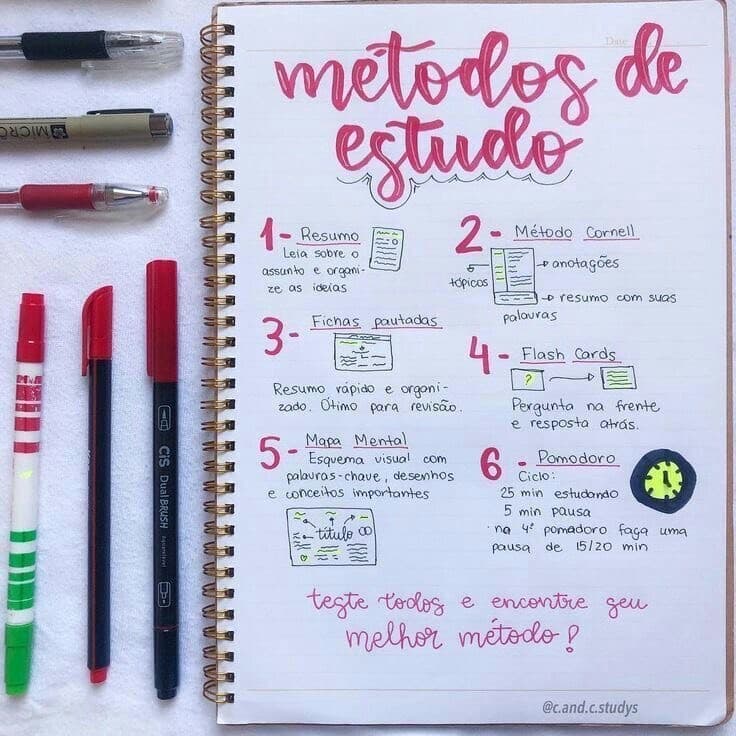 Date
métodos de
estudo
1- Resumo
Leia sobre o
assunto e organi-
ze as ideias
2- Método Cornell
anotações
tópicos
resumo com suas
palavras
3- Fichas pautadas
Resumo rápido e organi-
zado. Ótimo para revisão.
4- Flash Cards
?
Pergunta na frente
e resposta atrás.
5- Mapa Mental
Esquema visual com
palavras-chave, desenhos
e conceitos importantes
título
6- Pomodoro
Ciclo:
25 min estudando
5 min pausa
na 4º pomadoro faça uma
pausa de 15/20 min
teste todos e encontre seu
melhor método!
@c.and.c.studys
MICRO
CiS
Dual BRUSH
Aquarelável